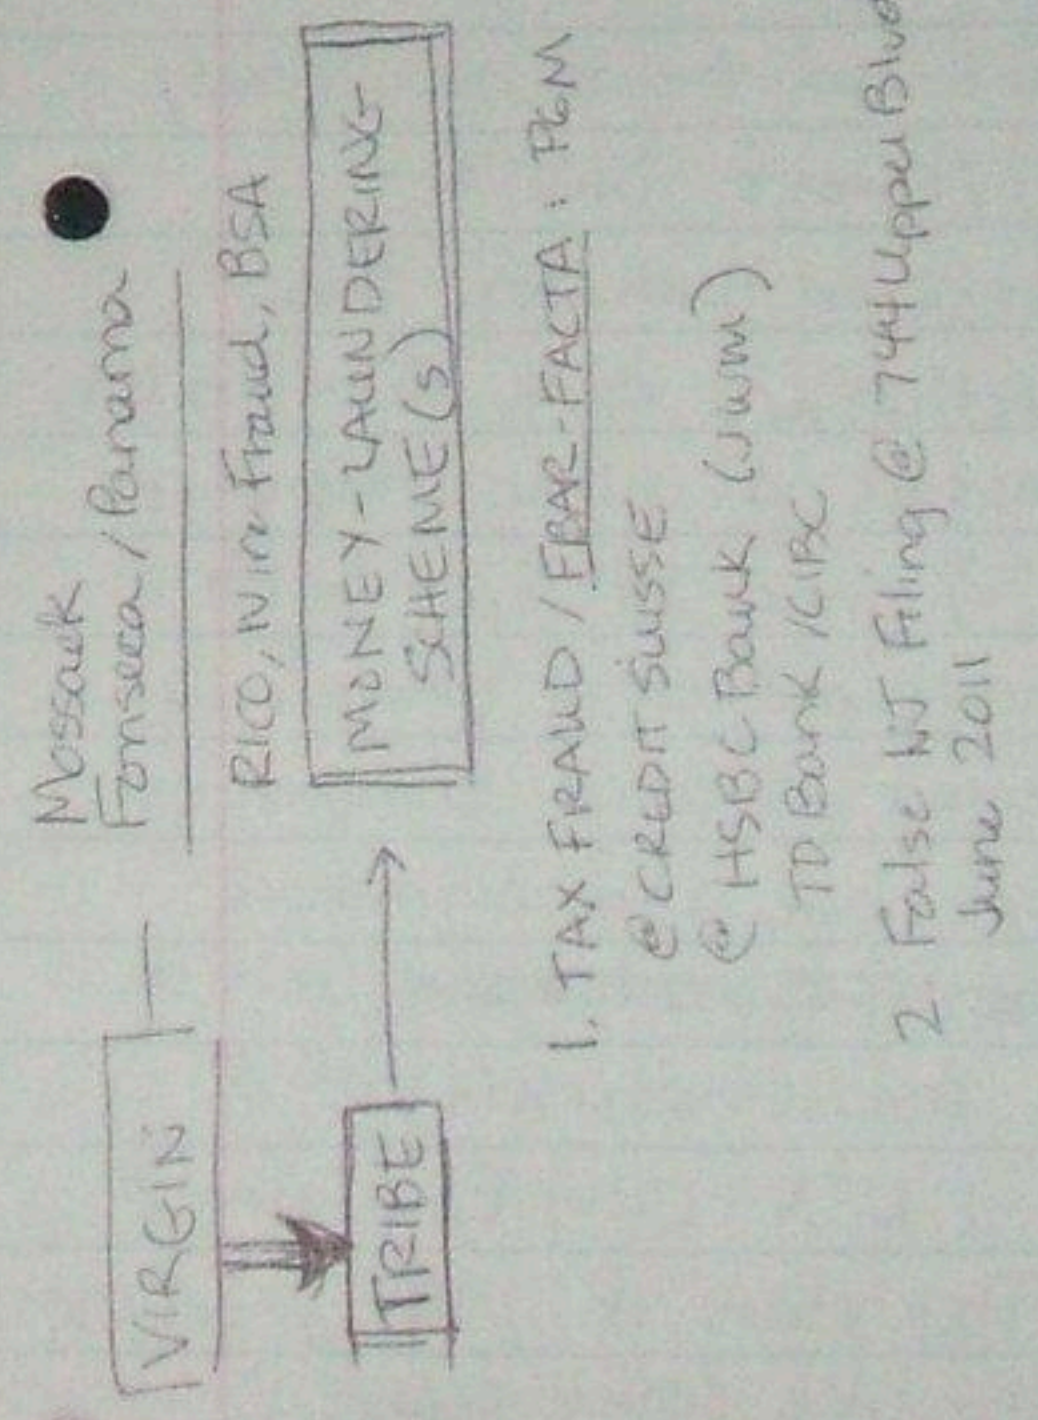 Mossack
Fonseca / Panama
VIRGIN
RICO, Wire Fraud, BSA
MONEY-LAUNDERING
SCHEME(S)
TRIBE
1. TAX FRAUD / FBAR-FACTA: PGM
@ CREDIT SUISSE
@ HSBC Bank (JWM)
TD Bank / CIBC
2 False NJ Filing @ 744 Upper Blvd
June 2011